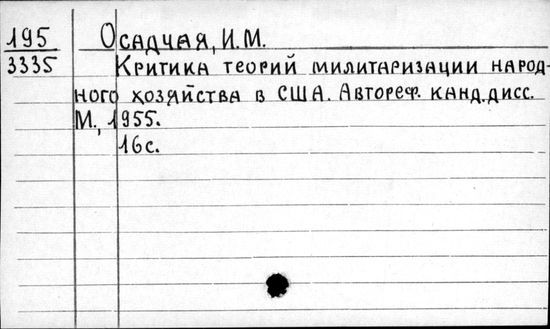 195 Осадчая, И.М.
3335 Критика теорий милитаризации народ-
ного хозяйства в США. Автореф. канд. дисс.
М., 1955.
16с.